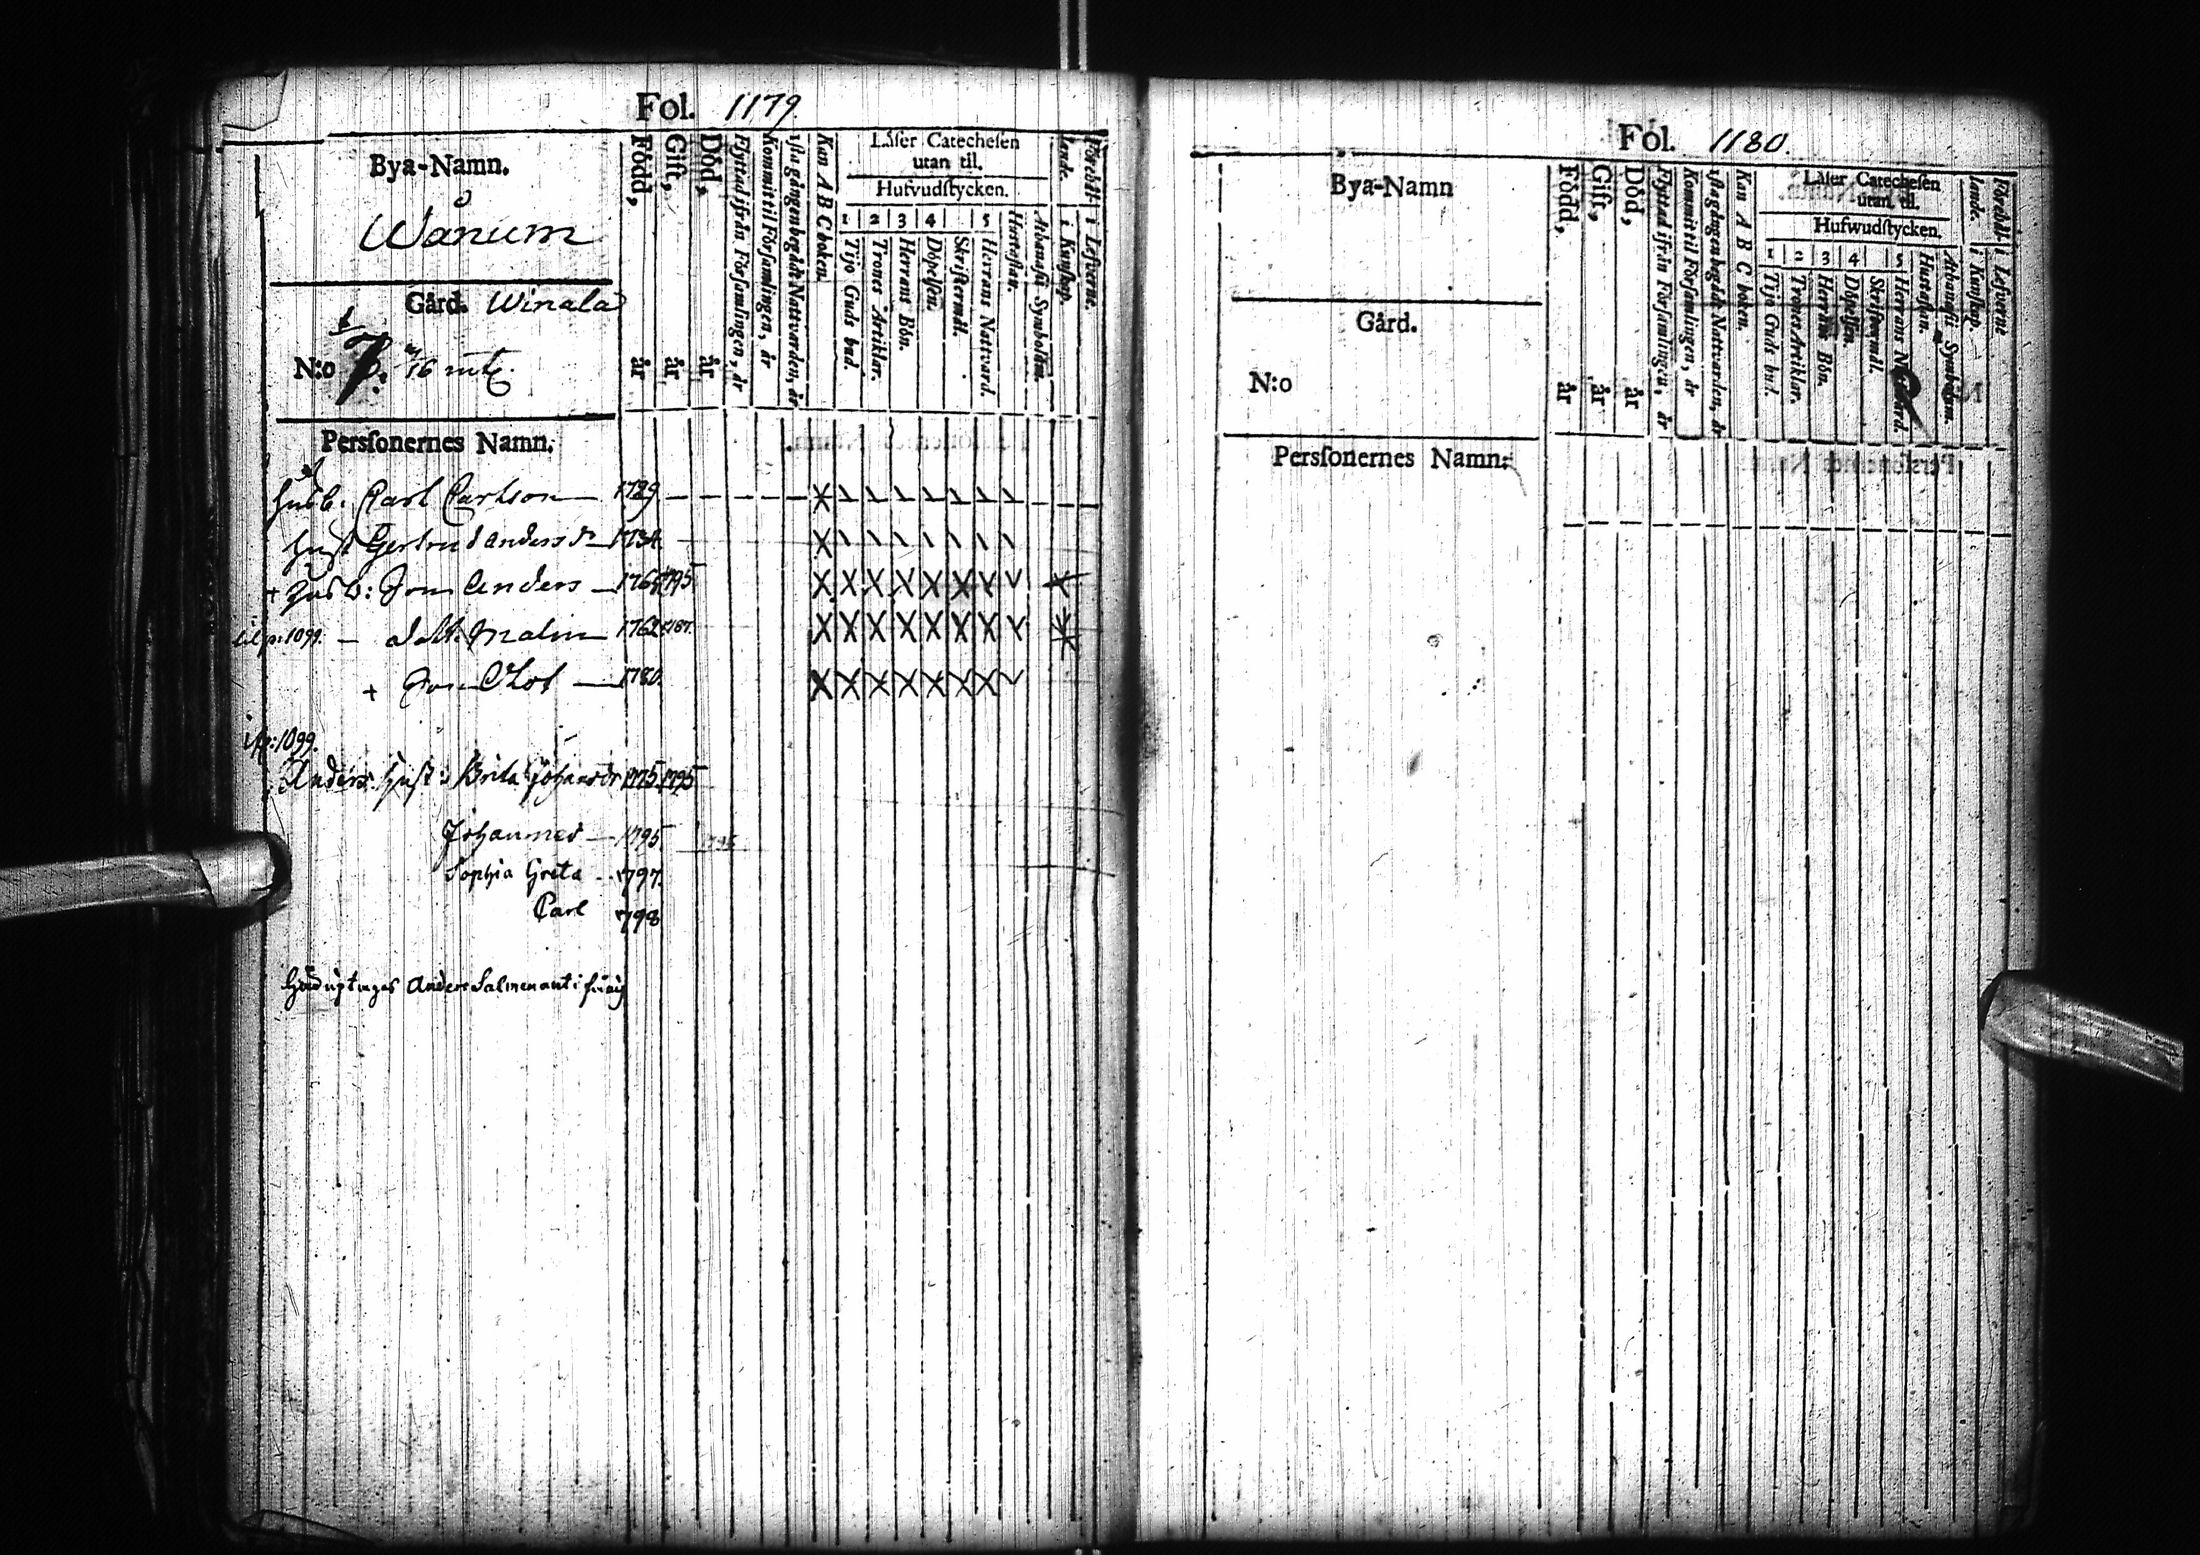 Fol. 1179.
Bya-Namn.
Wånum
Gård. Winala
N:o 7. 16 mtl.
Född, år
Gift, år
Död, år
Flyttad ifrån Församlingen, år
Kommit til Församlingen, år
1sta gången begådt Nattvarden, år
Kan A B C boken.
Läser Catechesen
utan til.
Hufvudstycken.
1 2 3 4 5
Tijo Guds bud.
Trones Artiklar.
Herrans Bön.
Döpelsen.
Skriftermål.
Herrans Nattvard.
Hustaflan.
Athanasii Symbolum.
Förehållande. i Kunskap.
i Lefverne.
Personernes Namn.
Husb. Carl Carlson 1729
Hust Gertrud andersdr 1734
+ Husb: Son Anders 1765 1795
til p: 1099. dott. Malin 1762 1787.
+ Son Olof 1780.
i p: 1099.
Anders Hust: Brita Johansdr 1775 1795
Johannes 1795 1795
Sophia Greta 1797.
Carl 1798
Anders
Fol. 1180.
Bya-Namn
Gård.
N:o
Född, år
Gift, år
Död, år
Flyttad ifrån Församlingen, år
Kommit til Församlingen, år
1sta gången begådt Nattvarden, år
Kan A B C boken.
Läser Catechesen
utan til.
Hufwudstycken.
1 2 3 4 5
Tijo Guds bud.
Trones Artiklar.
Herrans Bön.
Döpelsen.
Skriftermål.
Herrans Nattvard.
Hustaflan.
Athanasii Symbolum.
Förehållande. i Kunskap.
i Lefverne
Personernes Namn: